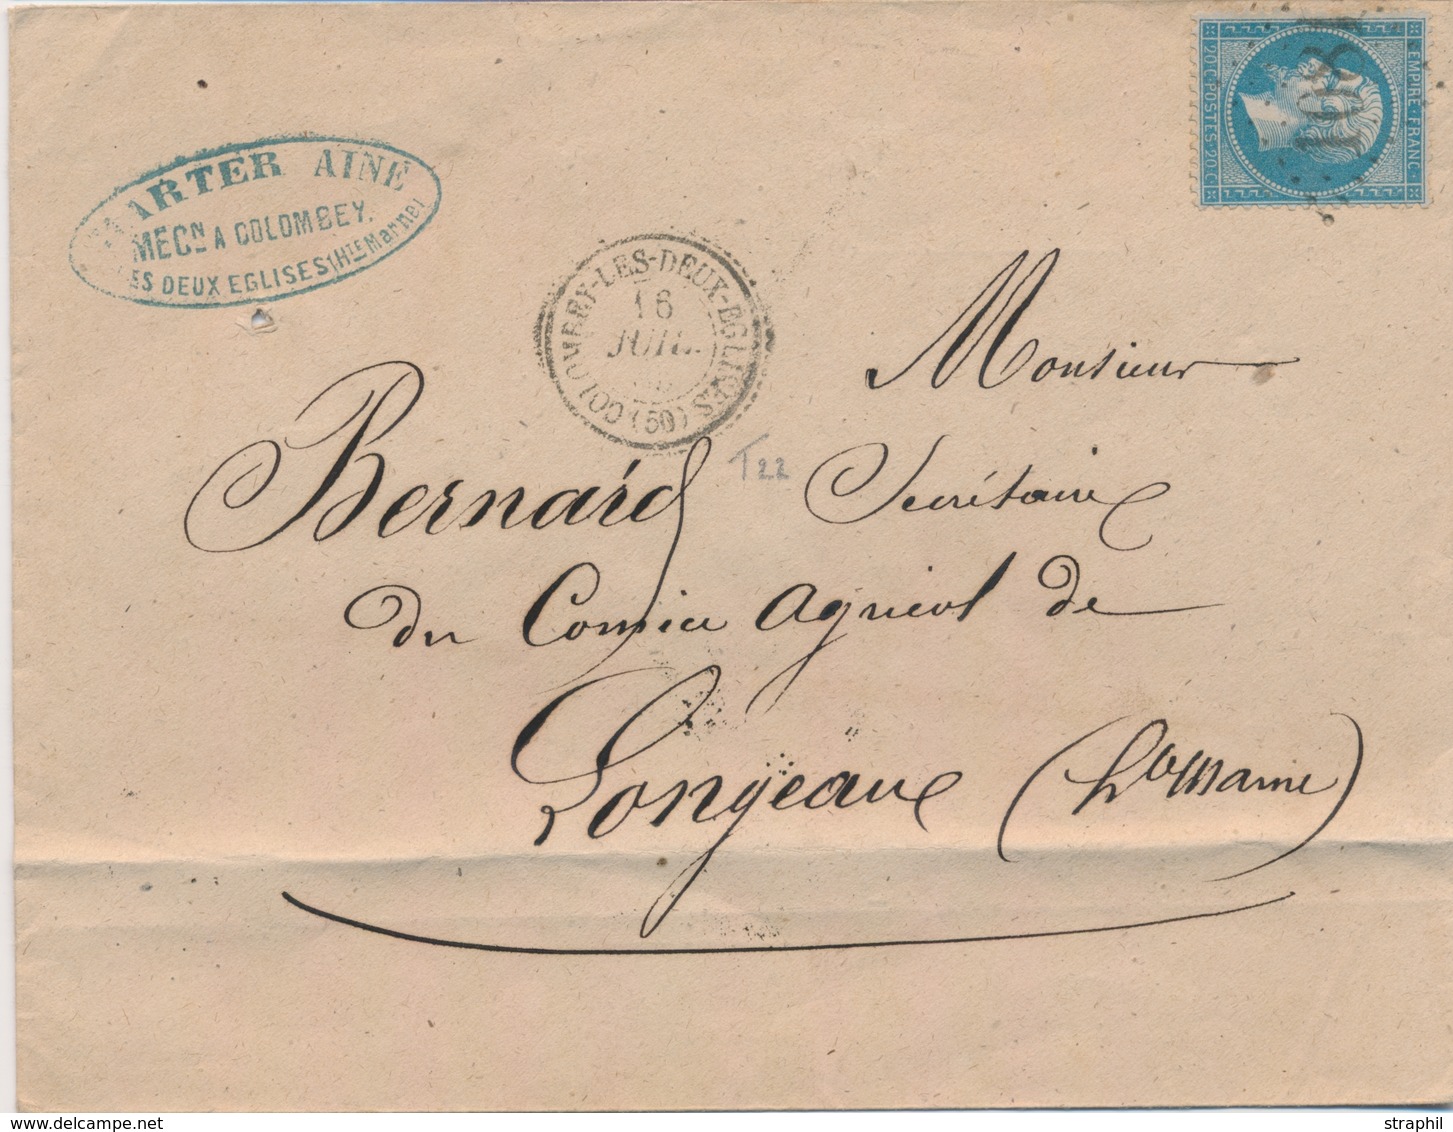 EMPIRE · FRANC ·
20 · C · POSTES · 20 · C
1081
ARTER AINÉ
MECN A COLOMBEY.
LES DEUX EGLISES (HTE Marne)
COLOMBEY-LES-DEUX-EGLISES (50)
16
JUIL.
T22
Monsieur
Bernard Secrétaire
du Comice Agricol de
Longeaux (hte Marne)
www.delcampe.net
straphil